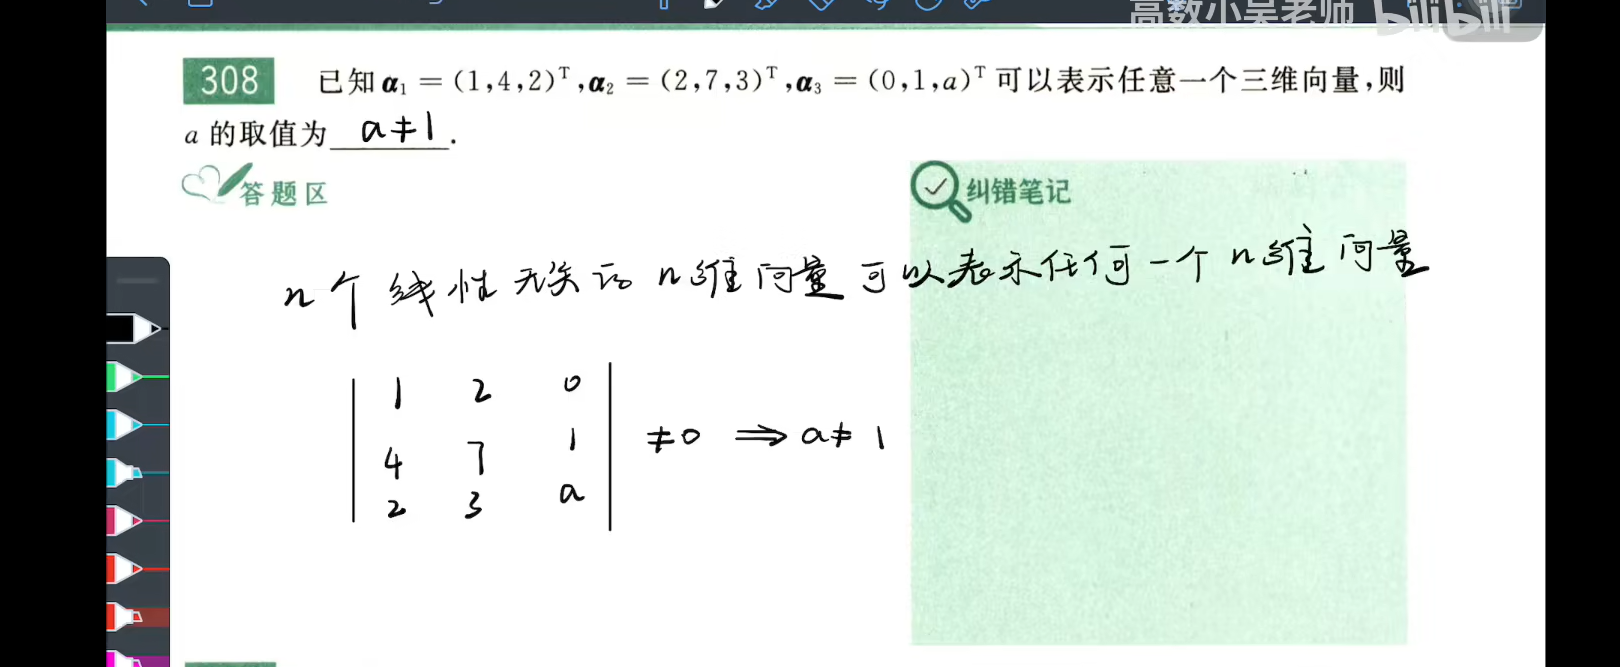 高数小吴老师 bilibili
308 已知 α₁ = (1,4,2)ᵀ,α₂ = (2,7,3)ᵀ,α₃ = (0,1,a)ᵀ 可以表示任意一个三维向量,则
a 的取值为 a≠1 .
答题区
纠错笔记
n个线性无关的n维向量可以表示任何一个n维向量
1 2 0
4 7 1 ≠0 ⇒ a≠1
2 3 a